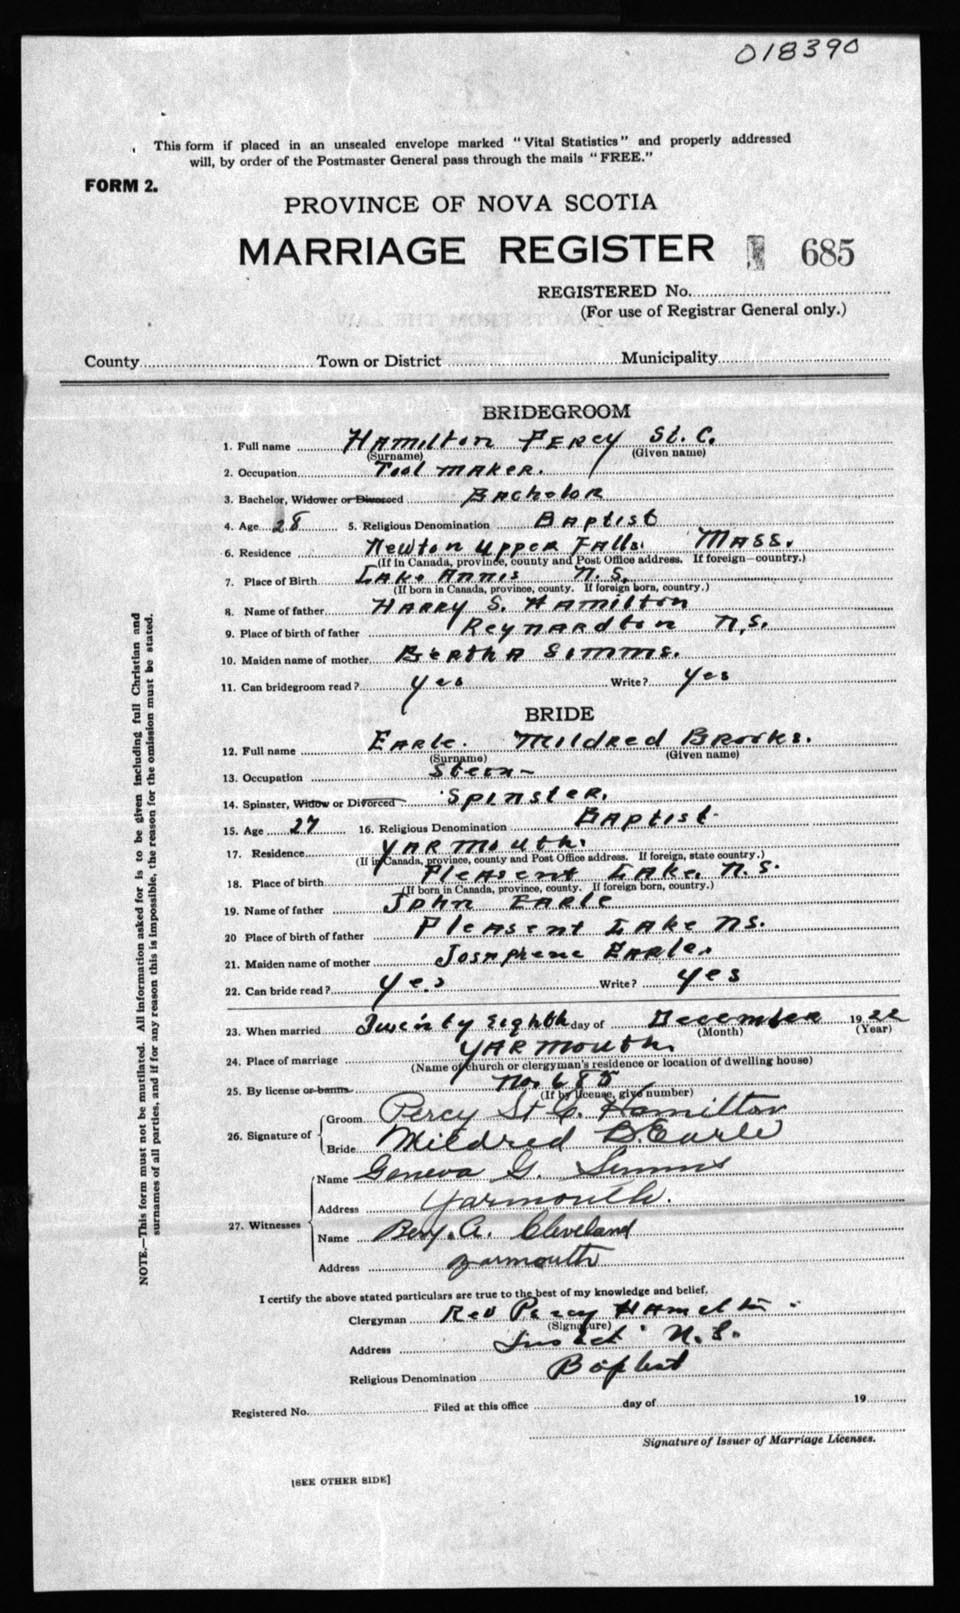 018390
This form if placed in an unsealed envelope marked "Vital Statistics" and properly addressed
will, by order of the Postmaster General pass through the mails "FREE."
FORM 2.
PROVINCE OF NOVA SCOTIA
MARRIAGE REGISTER 685
REGISTERED No.
(For use of Registrar General only.)
County Town or District Municipality
BRIDEGROOM
1. Full name Hamilton Percy St. C.
(Surname) (Given name)
2. Occupation Tool maker.
3. Bachelor, Widower or Divorced Bachelor
4. Age 28 5. Religious Denomination Baptist
6. Residence Newton Upper Falls. Mass.
(If in Canada, province, county and Post Office address. If foreign—country.)
7. Place of Birth Lake Annis N.S.
(If born in Canada, province, county. If foreign born, country.)
8. Name of father Harry S. Hamilton
9. Place of birth of father Reynardton N.S.
10. Maiden name of mother Bertha Simms.
11. Can bridegroom read? yes Write? yes
BRIDE
12. Full name Earle. Mildred Brooks.
(Surname) (Given name)
13. Occupation
14. Spinster, Widow or Divorced Spinster.
15. Age 27 16. Religious Denomination Baptist.
17. Residence Yarmouth.
(If in Canada, province, county and Post Office address. If foreign, state country.)
18. Place of birth Pleasent Lake. N.S.
(If born in Canada, province, county. If foreign born, country.)
19. Name of father John Earle
20 Place of birth of father Pleasent Lake NS.
21. Maiden name of mother Josaphene Earle.
22. Can bride read? Yes Write? yes
23. When married Twenty Eighth day of December 1922
(Month) (Year)
24. Place of marriage Yarmouth.
(Name of church or clergyman's residence or location of dwelling house)
25. By license or banns No. 685
(If by license, give number)
26. Signature of
Groom Percy St C. Hamilton
Bride Mildred B. Earle
27. Witnesses
Name Geneva G. Simms
Address Yarmouth.
Name Benj. A. Cleveland
Address Yarmouth
I certify the above stated particulars are true to the best of my knowledge and belief.
Clergyman Rev Percy Hamelton
(Signature)
Address N.S.
Religious Denomination Baptist
Registered No. Filed at this office day of 19
Signature of Issuer of Marriage Licenses.
[SEE OTHER SIDE]
NOTE.—This form must not be mutilated. All information asked for is to be given including full Christian and
surnames of all parties, and if for any reason this is impossible, the reason for the omission must be stated.